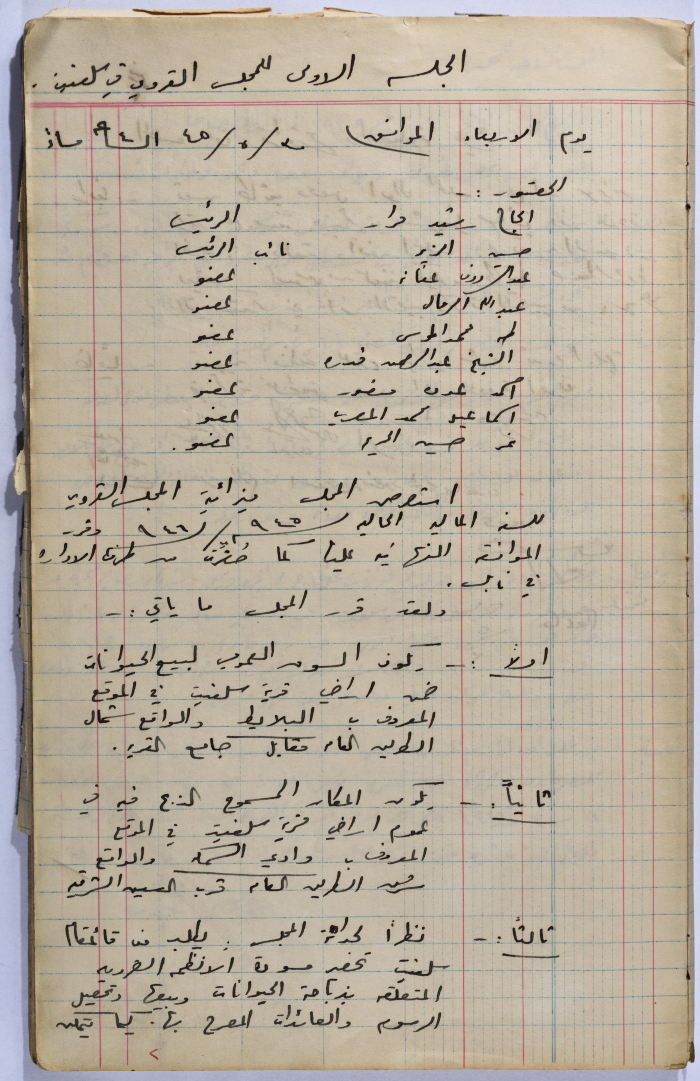 الجلسه الاولى للمجلس القروي في سلفيت .
يوم الاربعاء الموافق ٣٠/٥/٤٥ الساعة ٤ مساءً
الحضور :-
الحاج رشيد مرار الرئيس
حسين الزير نائب الرئيس
عبد الرؤوف عفانه عضو
عبد الله الرمال عضو
طه محمد الموسى عضو
الشيخ عبد الرحمن قدره عضو
احمد عوده منصور عضو
اسماعيل محمد المصري عضو
نمر حسين عضو .
استعرض المجلس ميزانية المجلس القروي
للسنه الماليه الحاليه ٩٤٥/٩٤٦ وقرر
الموافقة النهائيه عليها كما من طرف الاداره
في نابلس .
ولقد قرر المجلس ما ياتي :-
اولاً :- يكون السوق العمومي لبيع الحيوانات
ضمن اراضي قرية سلفيت في الموقع
المعروف ب البلاليط والواقع شمال
الطريق العام مقابل جامع القريه .
ثانياً :- يكون المكان المسموح الذبح فيه في
عموم اراضي قرية سلفيت في الموقع
المعروف ب وادي والواقع
شرق الطريق العام قرب العين الشرقيه
ثالثاً :- نظراً لحداثة المجلس يطلب من قائمقام
سلفيت تحضير مسودة الانظمه الضروريه
المتعلقه بذباحة الحيوانات وبيعها وتحصيل
الرسوم والعائدات المصرح بها كيما يتمكن